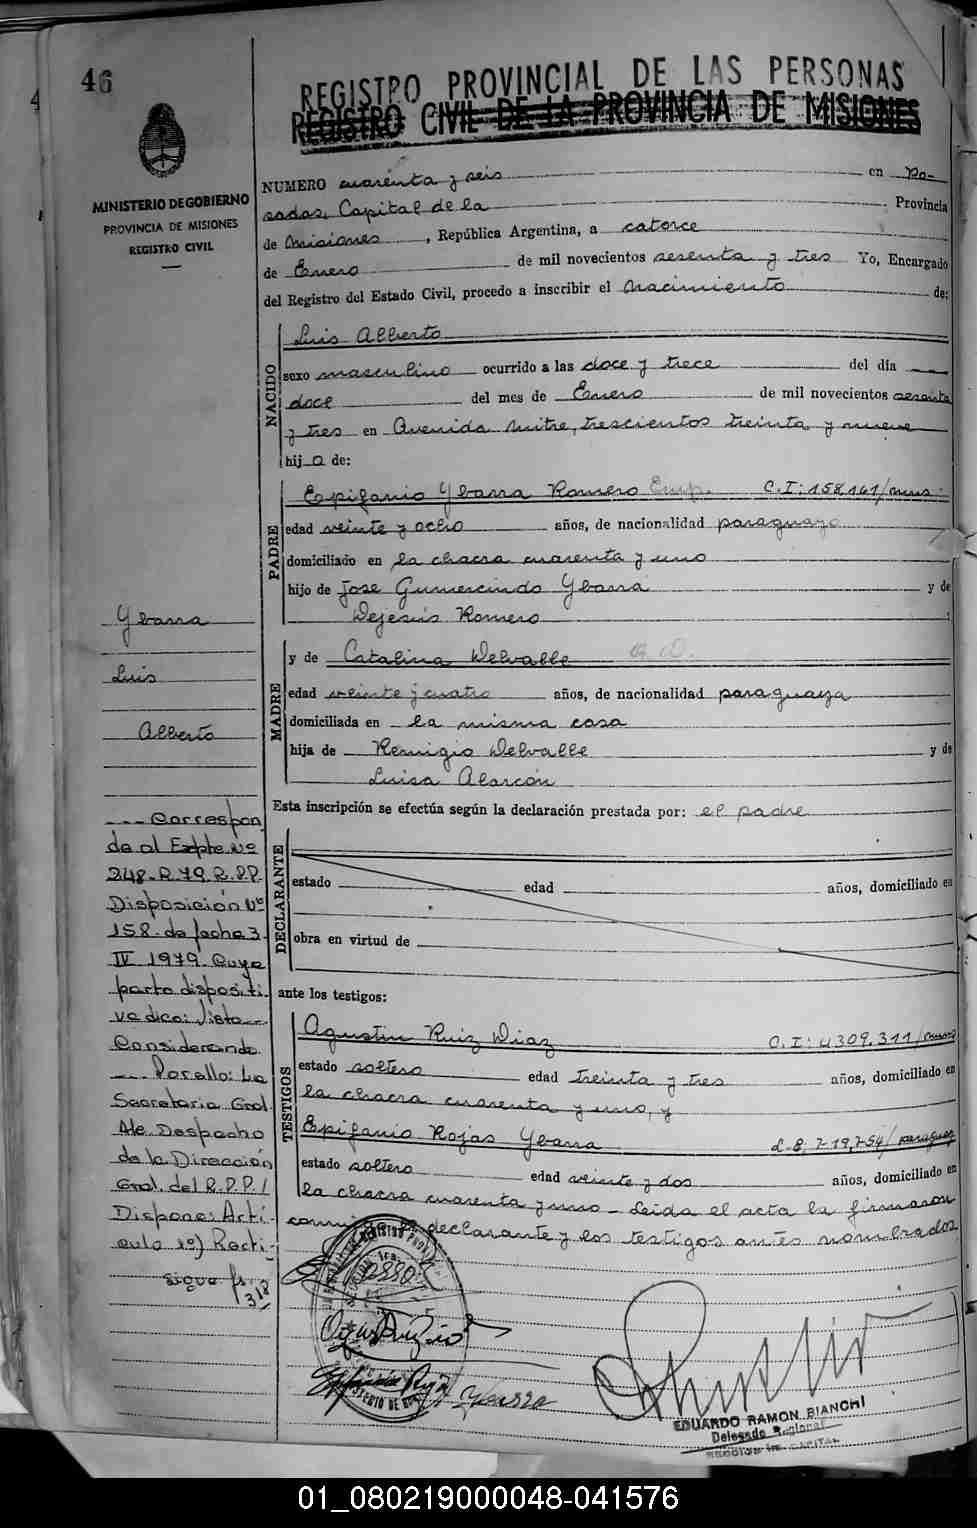 46
REGISTRO PROVINCIAL DE LAS PERSONAS
REGISTRO CIVIL DE LA PROVINCIA DE MISIONES
MINISTERIO DE GOBIERNO
PROVINCIA DE MISIONES
REGISTRO CIVIL
NUMERO cuarenta y seis en Po-
sadas, Capital de la Provincia
de Misiones, República Argentina, a catorce
de Enero de mil novecientos sesenta y tres Yo, Encargado
del Registro del Estado Civil, procedo a inscribir el Nacimiento de:
NACIDO
Luis Alberto
sexo masculino ocurrido a las doce y trece del día
doce del mes de Enero de mil novecientos sesenta
y tres en Avenida Mitre, trescientos treinta y nueve
hijo de:
PADRE
Epifanio Ybarra Romero Emp. C.I: 158,161/mnes.
edad veinte y ocho años, de nacionalidad paraguayo
domiciliado en la chacra cuarenta y uno
hijo de José Gumercindo Ybarra y de
Dejesús Romero
MADRE
y de Catalina Delvalle Q.D.
edad veinte y cuatro años, de nacionalidad paraguaya
domiciliada en la misma casa
hija de Remigio Delvalle y de
Luisa Alarcón
Esta inscripción se efectúa según la declaración prestada por: el padre
DECLARANTE
estado edad años, domiciliado en
obra en virtud de
ante los testigos:
TESTIGOS
Agustin Ruiz Diaz C.I: 4309.311/mnes
estado soltero edad treinta y tres años, domiciliado en
la chacra cuarenta y uno, y
Epifanio Rojas Ybarra L.B. 719,754/paraguay
estado soltero edad veinte y dos años, domiciliado en
la chacra cuarenta y uno - Leida el acta la firmaron
conmigo el declarante y los testigos antes nombrados
Ybarra
Luis
Alberto
--- Correspon
de al Expte. Nº
248-R.79 R.P.P.
Disposición Nº
158- de fecha 3
IV 1979 Cuya
parte dispositi
va dice: Visto---
Considerando
--- Por ello: La
Secretaria Gral.
de Despacho
de la Dirección
Gral. del R.P.P./
Dispone: Artí-
culo 1º) Recti-
sigue fs.
318
EDUARDO RAMON BIANCHI
Delegado Regional
01_080219000048-041576